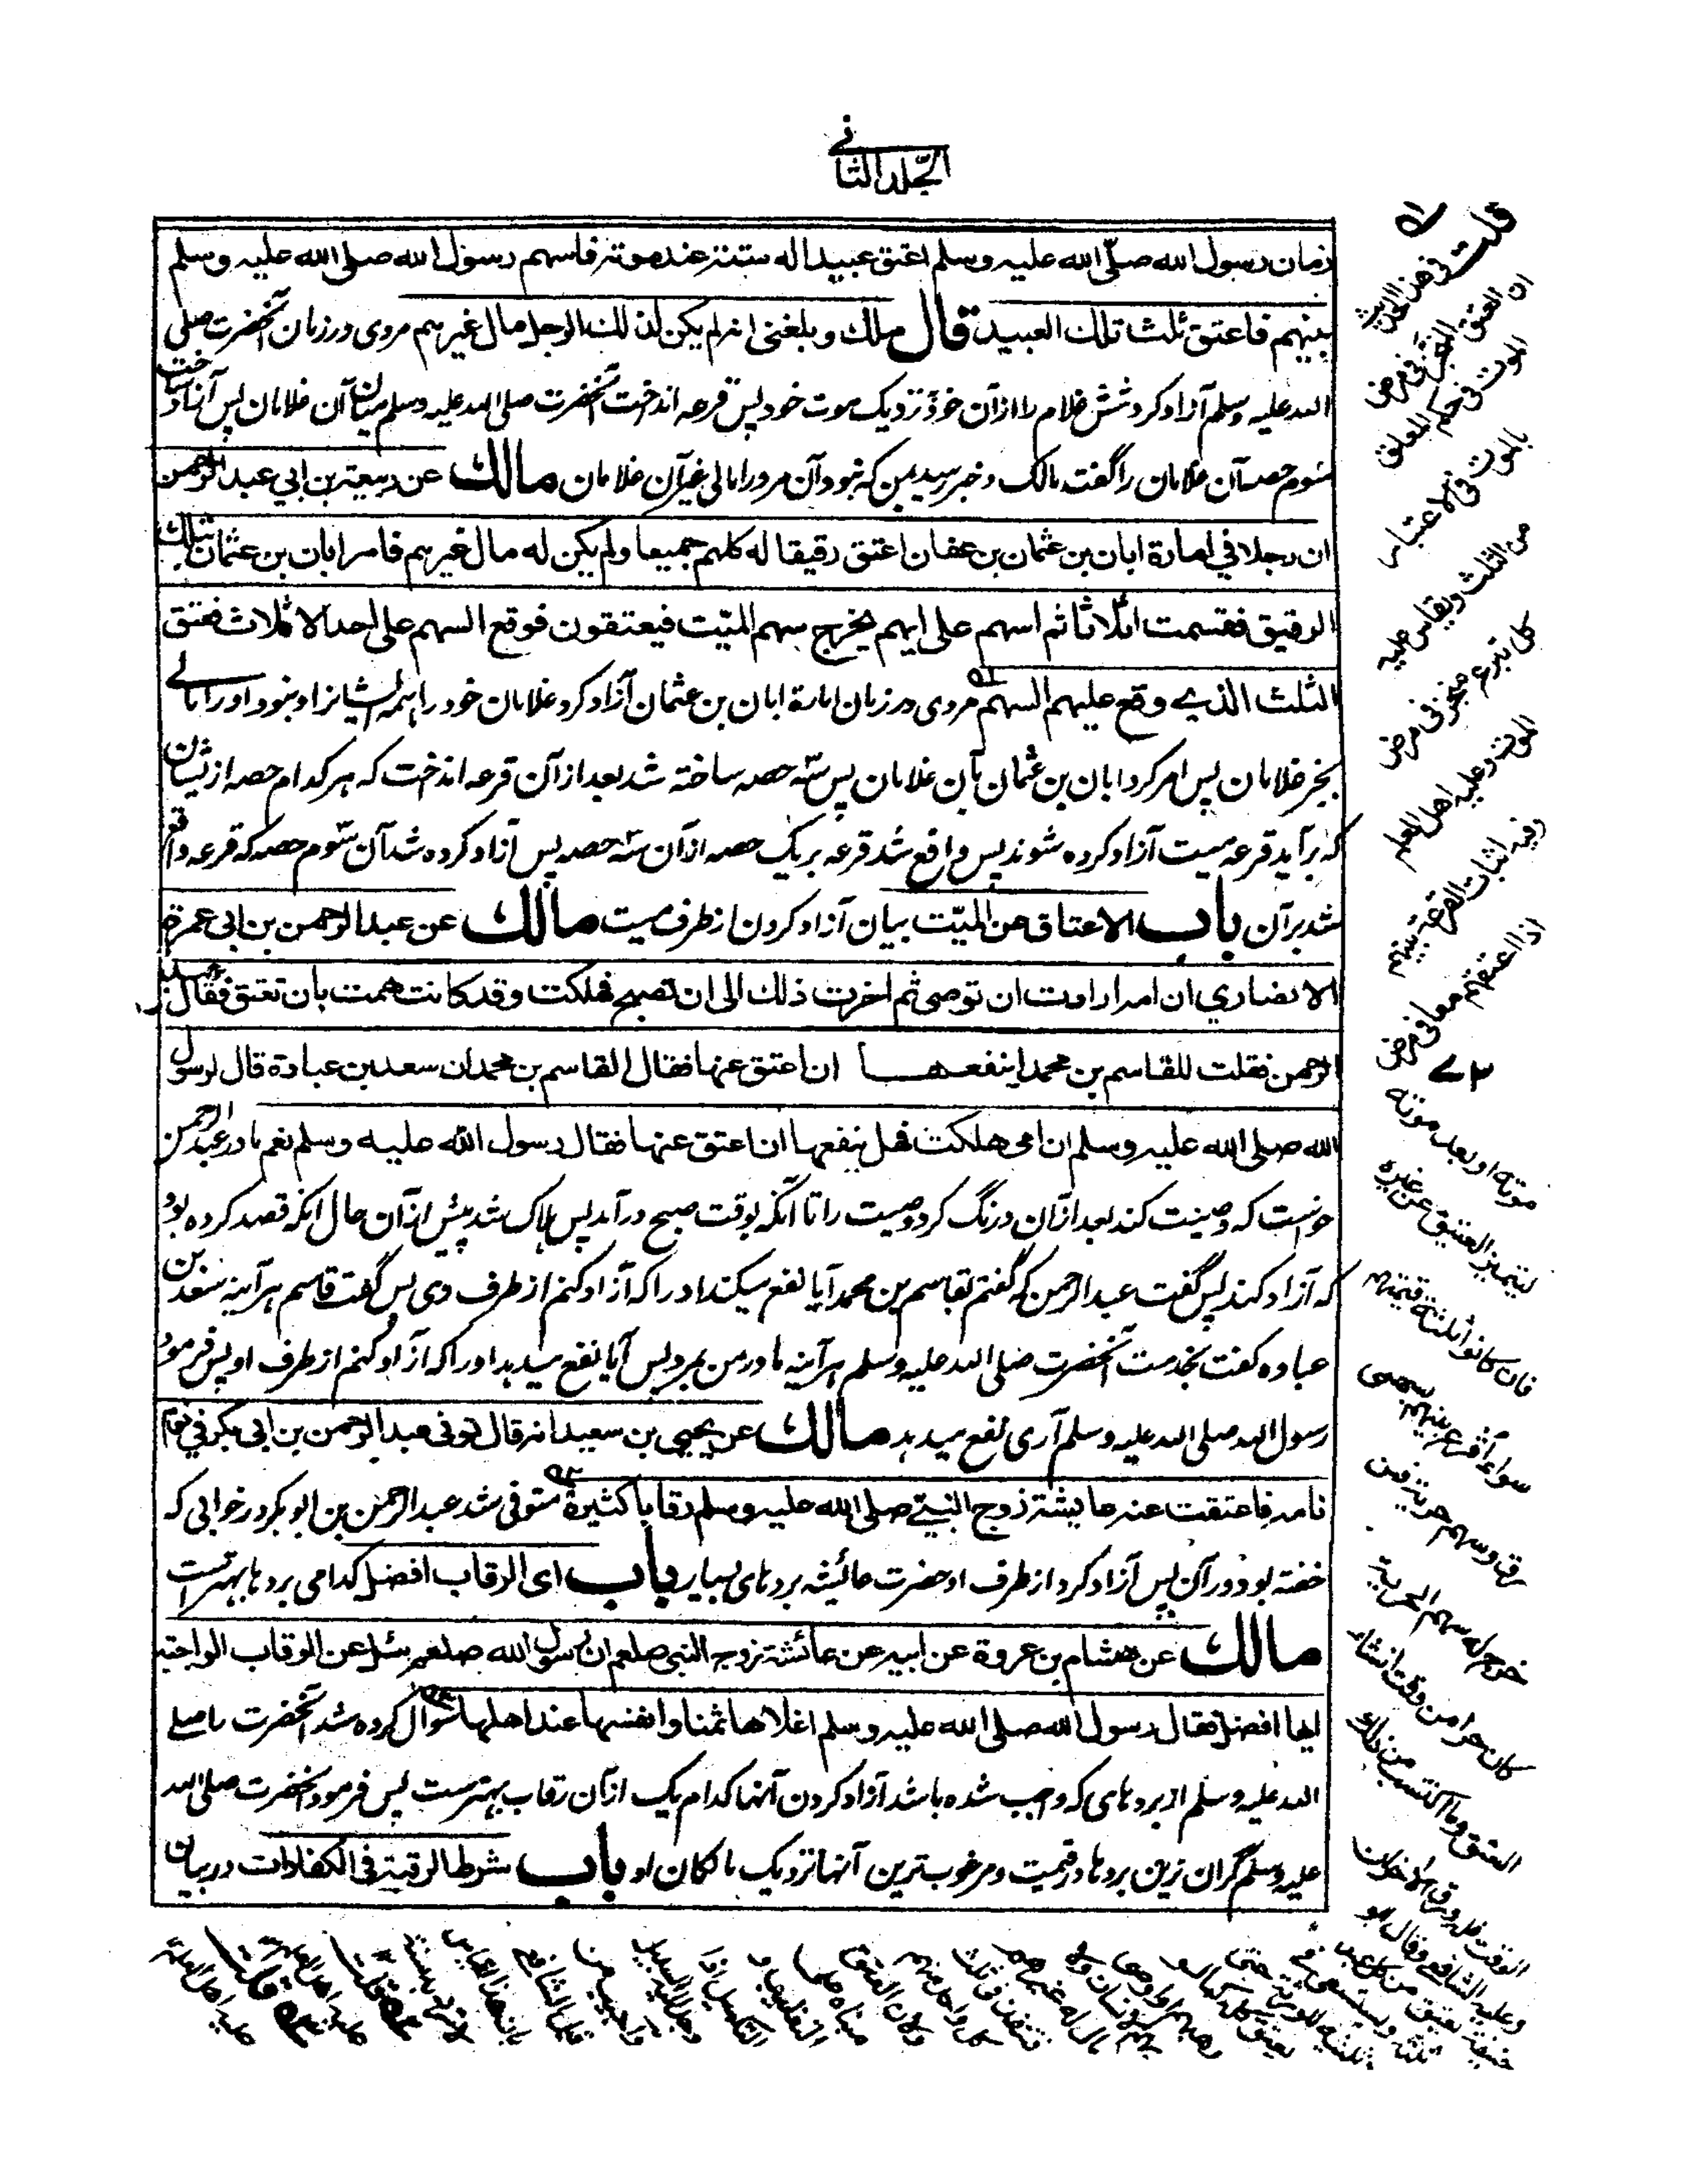 الجلد الثاني
زمان رسول الله صلّى الله عليه وسلم اعتق عبيدا له ستة عند موته فاسهم رسول الله صلى الله عليه وسلم
بينهم فاعتق ثلث تلك العبيد قال مالك وبلغنى انه لم يكن لذلك الرجل مال غيرهم مروی در زمان آنحضرت صلی
الله علیه وسلم آزاد کرد شش غلام را ازآن خود نزدیک موت خود پس قرعه انداخت آنحضرت صلی الله علیه وسلم میان آن غلامان پس آزاد ساخت
سوم حصه آن غلامان را گفت مالک و خبر رسید بمن که نبود آن مرد را مالی غیر آن غلامان مالك عن ربيعة بن ابي عبد الرحمن
ان رجلا في امارة ابان بن عثمان بن عفان اعتق رقيقا له كلهم جميعا ولم يكن له مال غيرهم فامر ابان بن عثمان بتلك
الرقيق فقسمت اثلاثا ثم اسهم على ايهم يخرج سهم الميّت فيعتقون فوقع السهم على احد الاثلاث فعتق
الثلث الذي وقع عليهم السهم مردی در زمان امارة ابان بن عثمان آزاد کرد غلامان خود را همه ایشانرا و نبود او را مالے
بجز غلامان پس امر کرد ابان بن عثمان بآن غلامان پس سه حصه ساخته شد بعد ازآن قرعه انداخت که هر کدام حصه ازیشان
که برآید قرعه میت آزاد کرده شوند پس واقع شد قرعه بریک حصه ازآن سه حصه پس آزاد کرده شد آن سوم حصه که قرعه واقع
شد برآن باب الاعتاق عن الميّت بیان آزاد کردن از طرف میت مالك عن عبد الرحمن بن ابى عمرة
الانصاري ان امه ارادت ان توصى ثم اخرت ذلك الى ان تصبح فهلكت وقد كانت همت بان تعتق فقال عبد
الرحمن فقلت للقاسم بن محمد اينفعها ان اعتق عنها فقال القاسم بن محمد ان سعد بن عبادة قال لرسول
الله صلى الله عليه وسلم ان امى هلكت فهل ينفعها ان اعتق عنها فقال رسول الله عليه وسلم نعم مادر عبد الرحمن
خواست که وصیت کند بعد ازآن درنگ کرد وصیت را تا آنکه بوقت صبح درآید پس هلاک شد پیش ازآن حال آنکه قصد کرده بود
که آزاد کند پس گفت عبد الرحمن که گفتم بقاسم بن محمد آیا نفع میکند او را که آزاد کنم از طرف وی پس گفت قاسم هرآینه سعد بن
عباده گفت بخدمت آنحضرت صلی الله علیه وسلم هرآینه مادر من بمرد پس آیا نفع میدهد او را که آزاد کنم از طرف او پس فرمود
رسول الله صلی الله علیه وسلم آری نفع میدهد مالك عن يحيى بن سعيد انه قال توفى عبد الرحمن بن ابى بكر في نوم
نامه فاعتقت عنه عايشة زوج النبيّ صلى الله عليه وسلم رقابا كثيرة متوفی شد عبد الرحمن بن ابو بکر در خوابی که
خفته بود درآن پس آزاد کرد از طرف او حضرت عائیشه بردهای بسیار باب اى الرقاب افضل کدامی بردها بهتر است
مالك عن هشام بن عروة عن ابيه عن عائشة زوج النبي صلعم ان رسول الله صلعم سئل عن الرقاب الواجبة
ايها افضل فقال رسول الله صلى الله عليه وسلم اغلاها ثمنا وانفسها عند اهلها سوال کرده شد آنحضرت را صلے
الله علیه وسلم از بردهای که واجب شده باشد آزاد کردن آنها کدام یک ازآن رقاب بهترست پس فرمود آنحضرت صلی الله
علیه وسلم گران ترین بردها در قیمت و مرغوب ترین آنها نزدیک مالکان او باب شرط الرقبة في الكفارات در بیان
قلت فى هذا الحديث
ان العتق المنجز فى مرض
الموت فى حكم المعلق
بالموت فى الاعتبار
من الثلث ويقاس عليه
كل تبرع منجز فى مرض
الموت وعليه اهل العلم
وفيه اثبات القرعة بينهم
اذا اعتقهم معا فى مرض
موته او بعد موته
ليتميز العتيق عن غيره
فان كانوا ثلثة قيمتهم
سواء اقرع بينهم بسهمى
رق وسهم حرية فمن
خرج له سهم الحرية
كان حرا من وقت انشاء
العتق وما اكتسب من ذلك
الوقت فله ورق الاخران
وعليه الشافعى وقال ابو
حنيفة يعتق من كل عبد